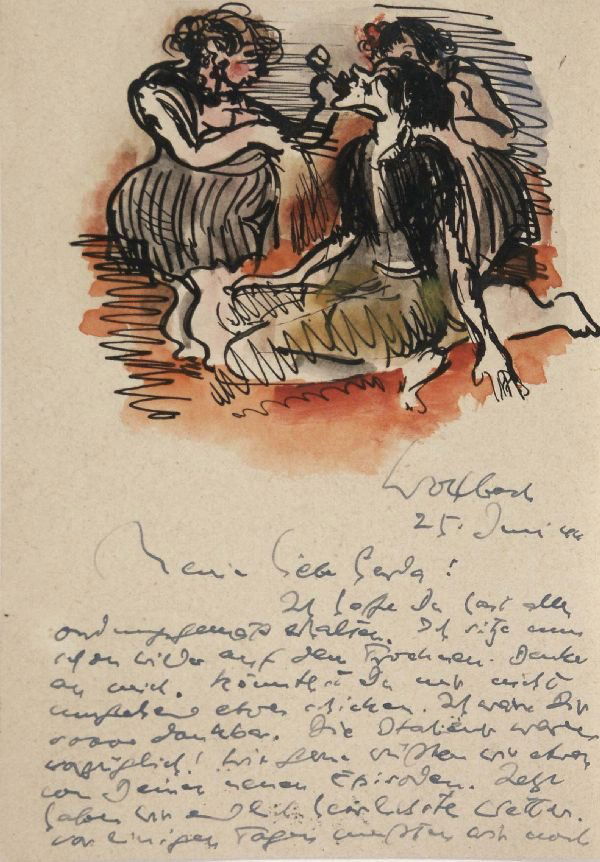 Wolfbach
25. Juni 44
Meine liebe Gerda!
Ich hoffe Du hast alles
ordnungsgemäß erhalten. Ich sitze nun
schon wieder auf dem Trocknen. Denke
an mich. Könntest Du mir nicht
umgehend etwas schicken. Ich wäre Dir
soooo dankbar. Die Italiener waren
vorzüglich! Wie gerne wüßten wir etwas
von Deinen neuen Episoden. Jetzt
haben wir endlich herrlichste Wetter.
vor einigen Tagen mußten wir noch